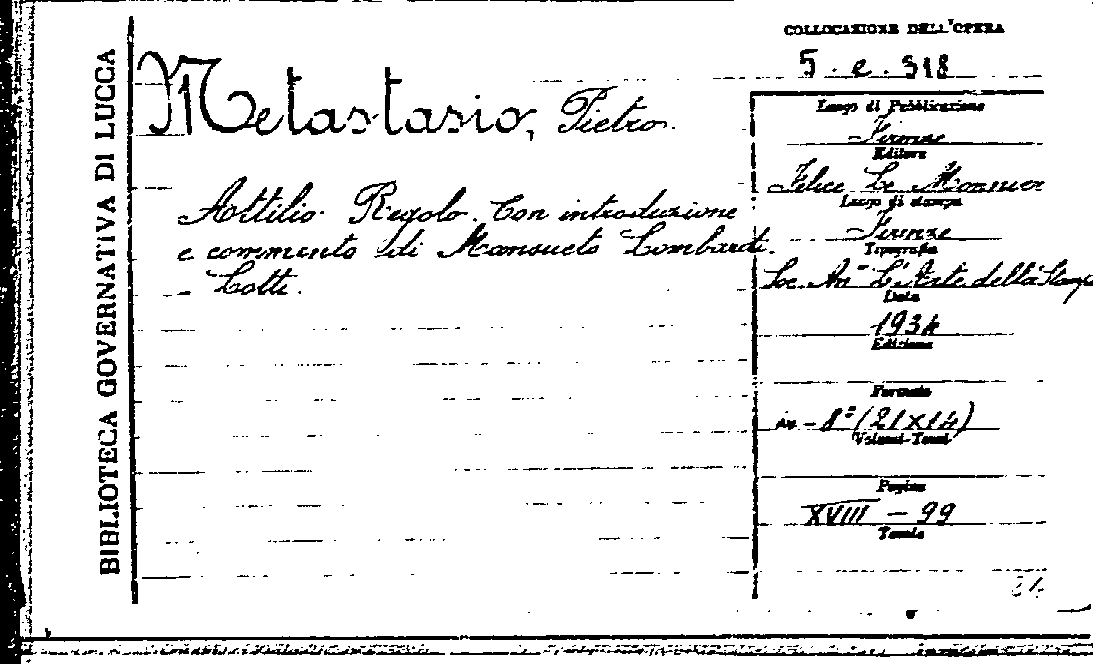 BIBLIOTECA GOVERNATIVA DI LUCCA
COLLOCAZIONE DELL'OPERA
5. e. 318
Metastasio, Pietro.
Attilio Regolo. Con introduzione
e commento di Mansueto Lombardi-
- Lotti.
Luogo di Pubblicazione
Firenze
Editore
Felice Le Monnier
Luogo di stampa
Firenze
Tipografia
Soc. An.ª L'Arte della Stampa
Data
1934
Edizione
Formato
in - 8º (21x14)
Volumi-Tomi
Pagine
XVIII - 99
Tavole